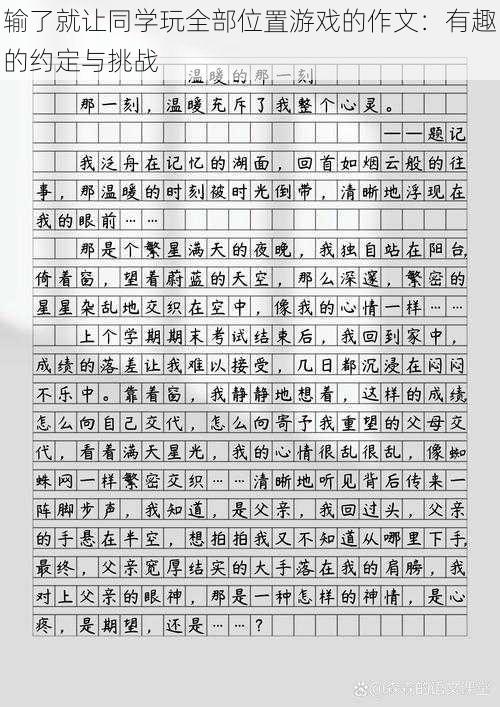 输了就让同学玩全部位置游戏的作文：有趣
的约定与挑战
温暖的那一刻
那一刻，温暖充斥了我整个心灵。
——题记
我泛舟在记忆的湖面，回首如烟云般的往
事，那温暖的时刻被时光倒带，清晰地浮现在
我的眼前……
那是个繁星满天的夜晚，我独自站在阳台，
倚着窗，望着蔚蓝的天空，那么深邃，繁密的
星星杂乱地交织在空中，像我的心情一样……
上个学期期末考试结束后，我回到家中，
成绩的落差让我难以接受，几日都沉浸在闷闷
不乐中。靠着窗，我静静地想着，这样的成绩
怎么向自己交代，怎么向寄予我重望的父母交
代，看着满天星光，我的心情很乱很乱，像蜘
蛛网一样繁密交织……清晰地听见背后传来一
阵脚步声，我知道，是父亲，我回过头，父亲
的手悬在半空，想拍拍我又不知道从哪里下手，
最终，父亲宽厚结实的大手落在我的肩膀，我
对上父亲的眼神，那是一种怎样的神情，是心
疼，是期望，还是……？